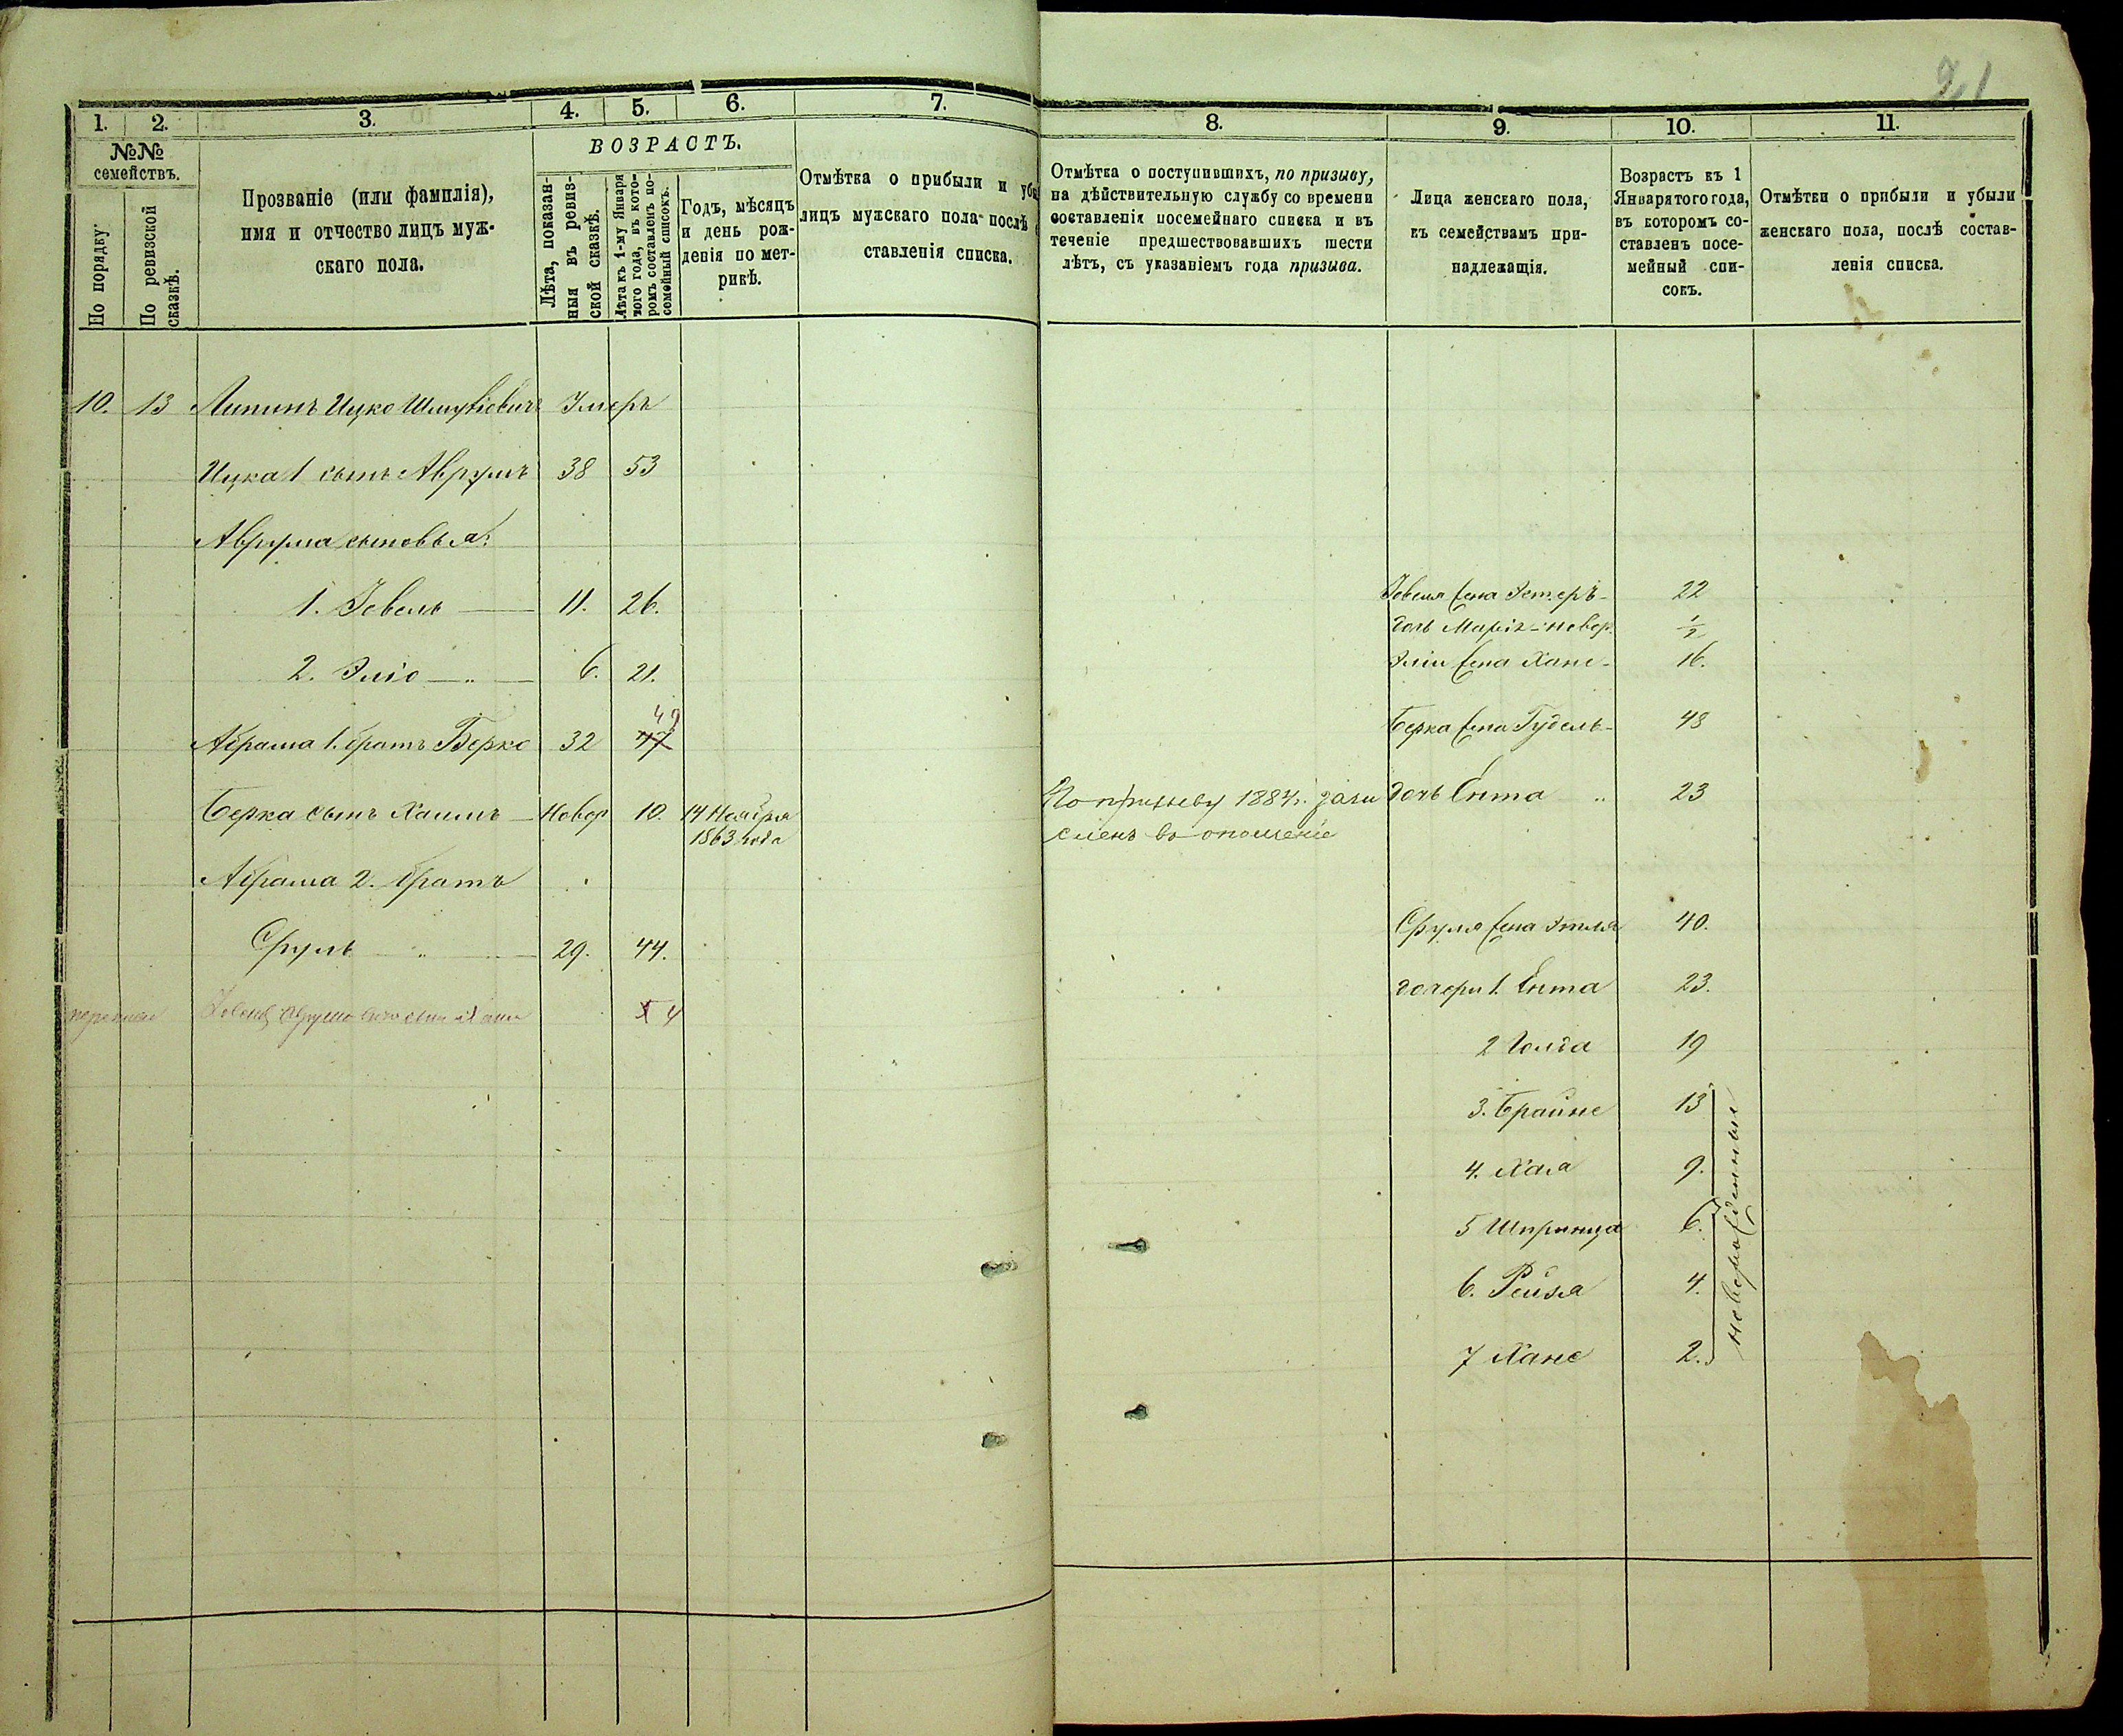 21
1. 2. 3. 4. 5. 6. 7.
№№ семействъ.
По порядку.
По ревизской сказкѣ.
Прозваніе (или фамилія),
имя и отчество лицъ муж-
скаго пола.
ВОЗРАСТЪ.
Лѣта, показан-
ныя въ ревиз-
ской сказкѣ.
Лѣта къ 1-му Января
того года, въ кото-
ромъ составленъ по-
семейный списокъ.
Годъ, мѣсяцъ
и день рож-
денія по мет-
рикѣ.
Отмѣтка о прибыли и
лицъ мужскаго пола послѣ
ставленія списка.
10. 13 Липинъ Ицко Умеръ
Ицка 1 сынъ Аврумъ 38 53
Аврума сыновья:
1. Зевель 11. 26.
2. Эліо 6. 21.
49
Абрама 1. братъ Берко 32 47
Берка сынъ Хаимъ Новор 10. 14 Ноября
1863 года
Абрама 2. братъ
Сруль 29. 44.
4
8. 9. 10. 11.
Отмѣтка о поступившихъ, по призыву,
на дѣйствительную службу со времени
составленія посемейнаго списка и въ
теченіе предшествовавшихъ шести
лѣтъ, съ указаніемъ года призыва.
Лица женскаго пола,
къ семействамъ при-
надлежащія.
Возрастъ къ 1
Января того года,
въ которомъ со-
ставленъ посе-
мейный спи-
сокъ.
Отмѣтки о прибыли и убыли
женскаго пола, послѣ состав-
ленія списка.
Зевеля жена Эстеръ 22
дочь Маріе новор. 1/2
Эліи жена Хане 16.
Берка жена Гудель 48
По призыву 1884 г. зачи дочь Ента 23
сленъ во ополченіе
Сруля жена Этля 40.
дочери 1. Ента 23.
2 Голда 19
3. Брайне 13
4. Хая 9.
5 Шпринца 6.
6. Рейзя 4.
7 Хане 2.
новорожденныя